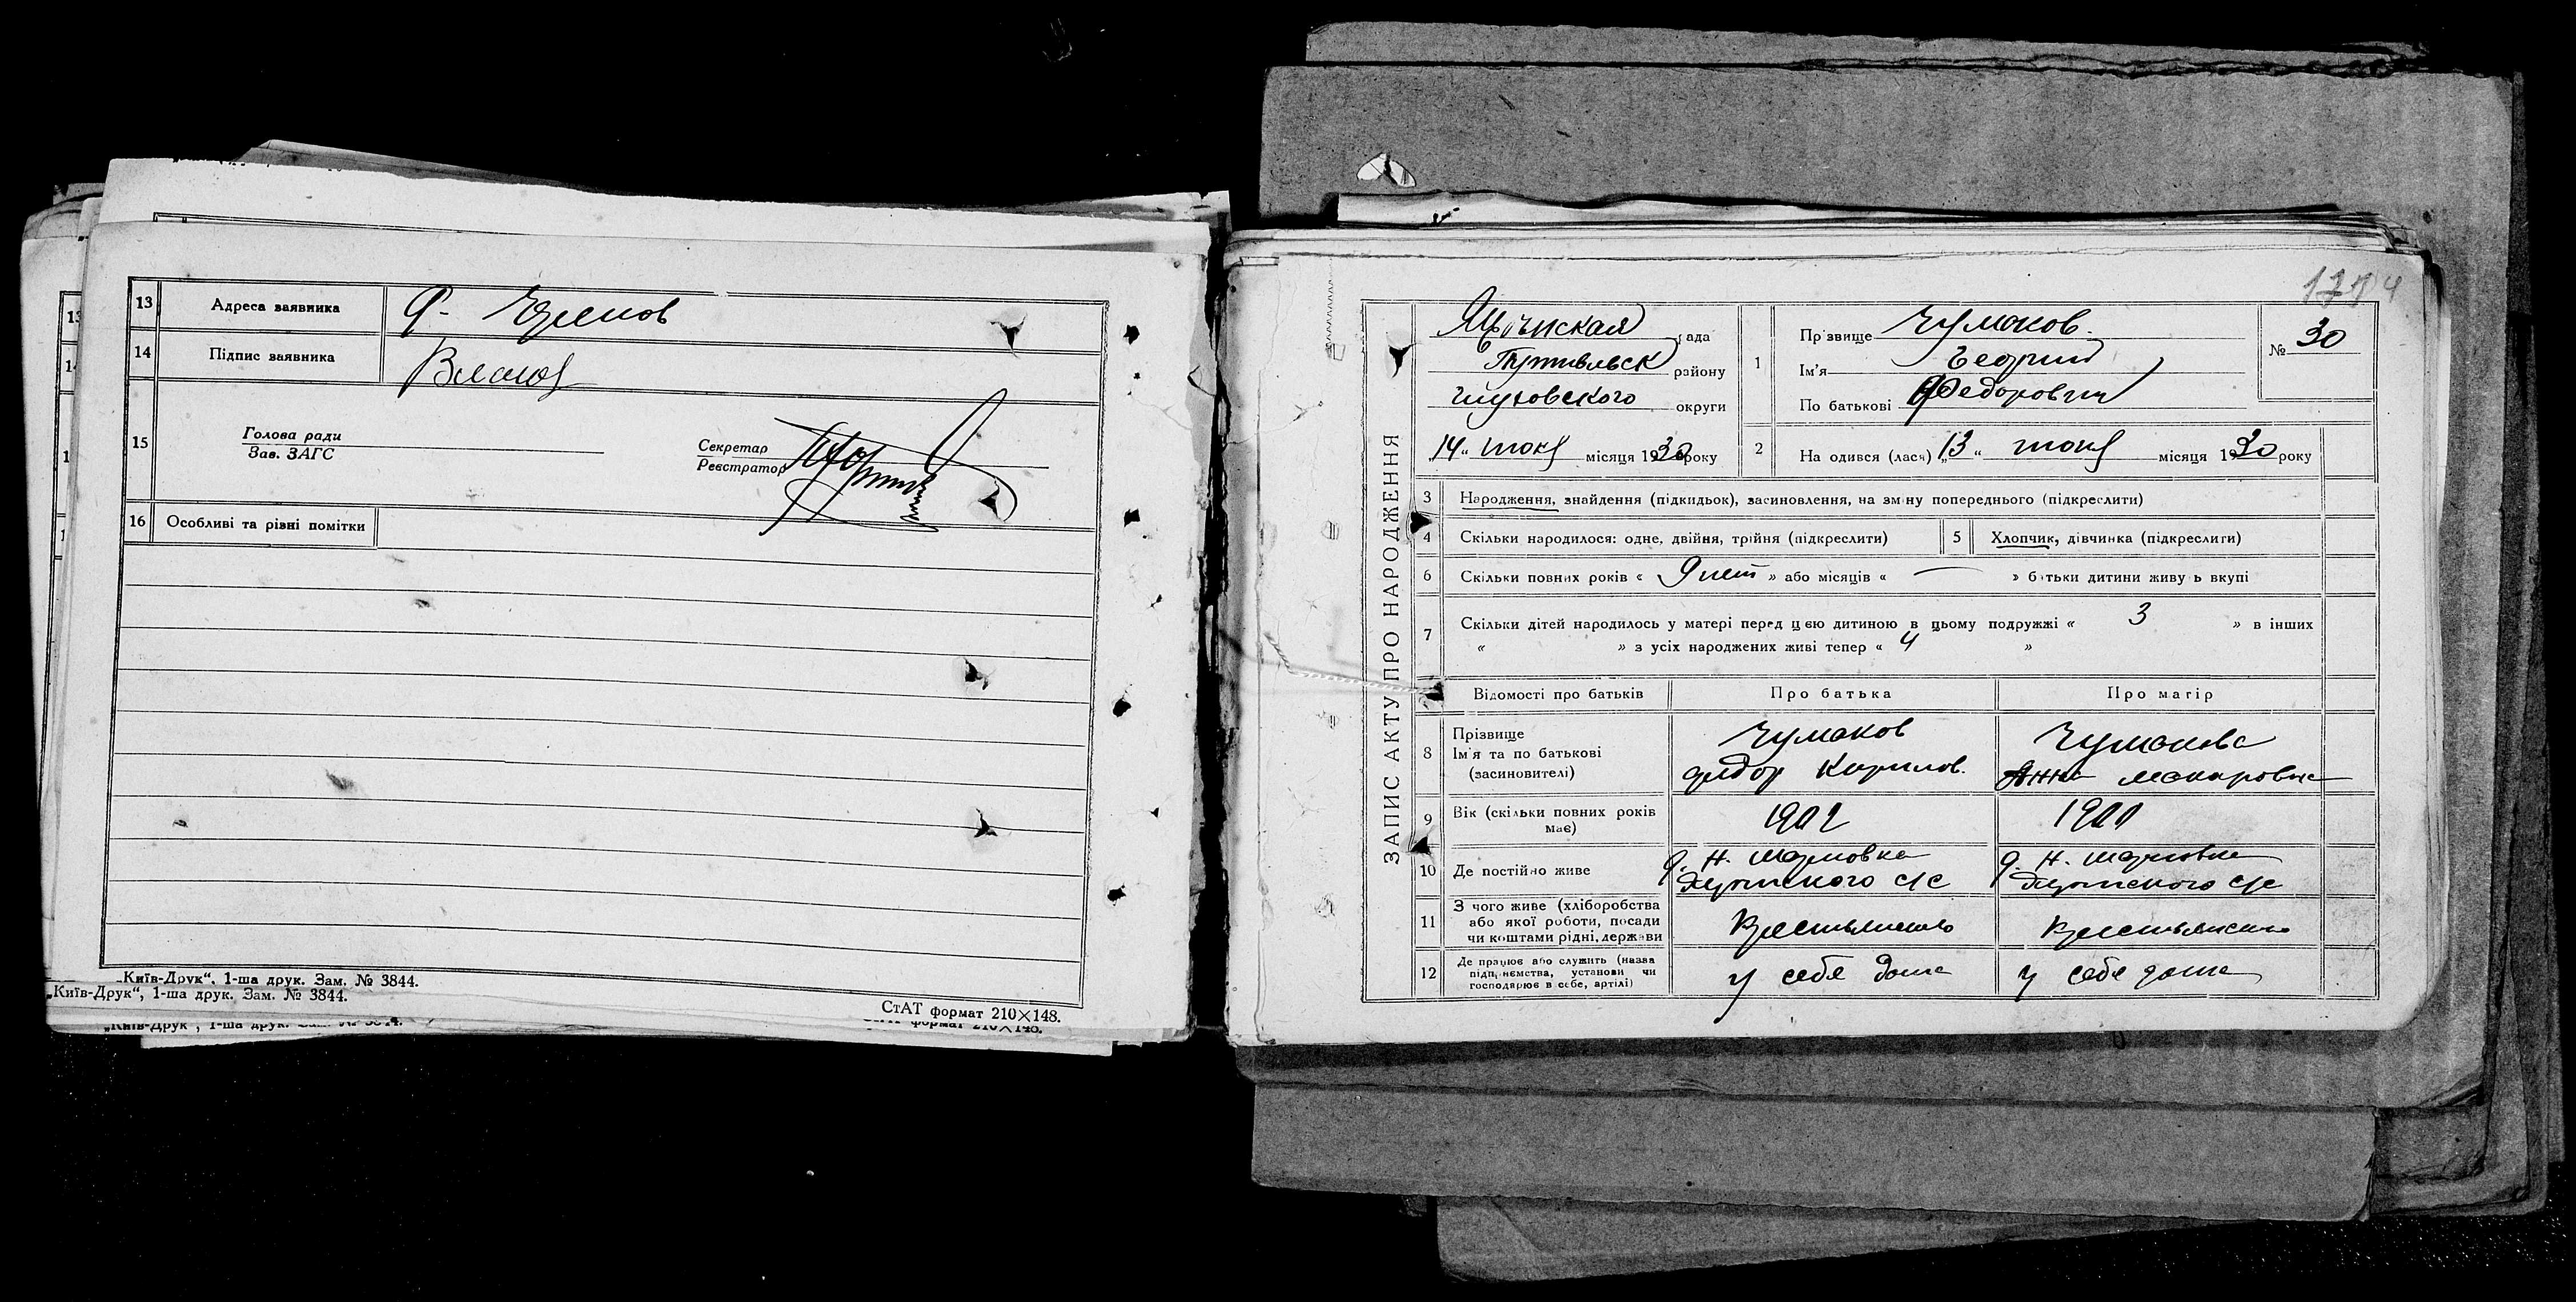 13 Адреса заявника
14 Підпис заявника
15 Голова ради
Зав. ЗАГС
Секретар
Реєстратор
16 Особливі та різні помітки
„Київ-Друк“, 1-ша друк. Зам. № 3844.
„Київ-Друк“, 1-ша друк. Зам. № 3844.
СтАТ формат 210×148.
ЗАПИС АКТУ ПРО НАРОДЖЕННЯ
рада
Путивльск району
Глуховского округи
„14“ июня місяця 1930 року
1 Прізвище Чумаков.
Ім'я Георгий
По батькові Федорович
№ 30
2 На одився (лася) „13“ июня місяця 1930 року
3 Народження, знайдення (підкидьок), засиновлення, на зміну попереднього (підкреслити)
4 Скільки народилося: одне, двійня, трійня (підкреслити)
5 Хлопчик, дівчинка (підкреслити)
6 Скільки повних років « 9 лет » або місяців « — » батьки дитини живуть вкупі
7 Скільки дітей народилось у матері перед цією дитиною в цьому подружжі « 3 » в інших
« » з усіх народжених живі тепер « 4 »
Відомості про батьків Про батька Про матір
8 Прізвище
Ім'я та по батькові
(засиновителі)
Чумаков
Федор Кирилов.
Чумакова
Анна Макаровна
9 Вік (скільки повних років
має)
1902
1900
10 Де постійно живе
с/с
с/с
11 З чого живе (хліборобства
або якої роботи, посади
чи коштами рідні, держави
Крестьянство
Крестьянство
12 Де працює або служить (назва
підприємства, установи чи
господарює в себе, артілі)
у себя дома
у себя дома